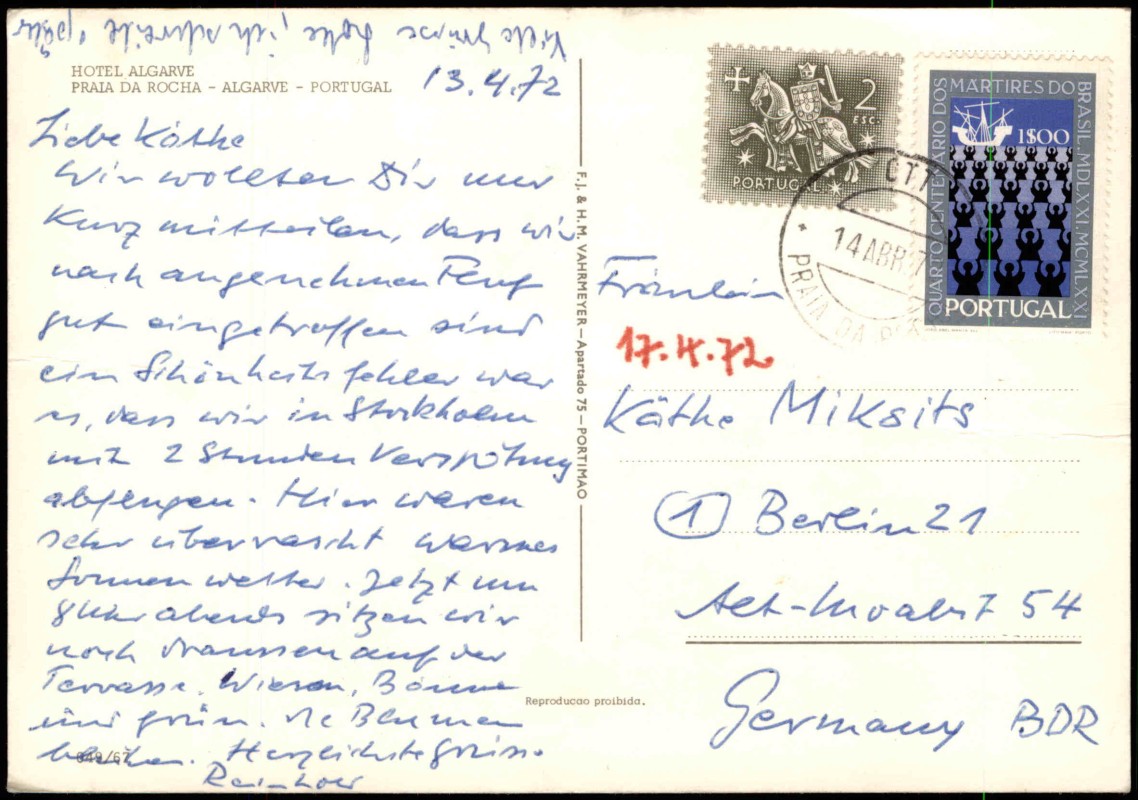 Viele Grüsse Käthe, ich schreibe später
HOTEL ALGARVE
PRAIA DA ROCHA - ALGARVE - PORTUGAL
13.4.72
Liebe Käthe
Wir wollten Dir nur
kurz mitteilen, dass wir
nach angenehmen Flug
gut eingetroffen sind
ein Schönheitsfehler war
es, dass wir in Stockholm
mit 2 Stunden Verspätung
abfingen. Hier waren
sehr überrascht warmes
Sonnenwetter. Jetzt um
8 Uhr abends sitzen wir
noch draussen auf der
Terrasse. Wiesen, Bäume
sind grün. die Blumen
blühen. Herzlichste Grüsse
Reinhold
049/67
F. J. & H. M. VAHRMEYER — Apartado 75 — PORTIMAO
Reproducao proibida.
2 ESC.
PORTUGAL
QUARTO CENTENÁRIO DOS MÁRTIRES DO BRASIL. MDLXXI. MCMLXXI
1$00
PORTUGAL
CTT
14 ABR. 7
PRAIA DA
Fräulein
17.4.72
Käthe Miksits
(1) Berlin 21
Alt-Moabit 54
Germany BDR